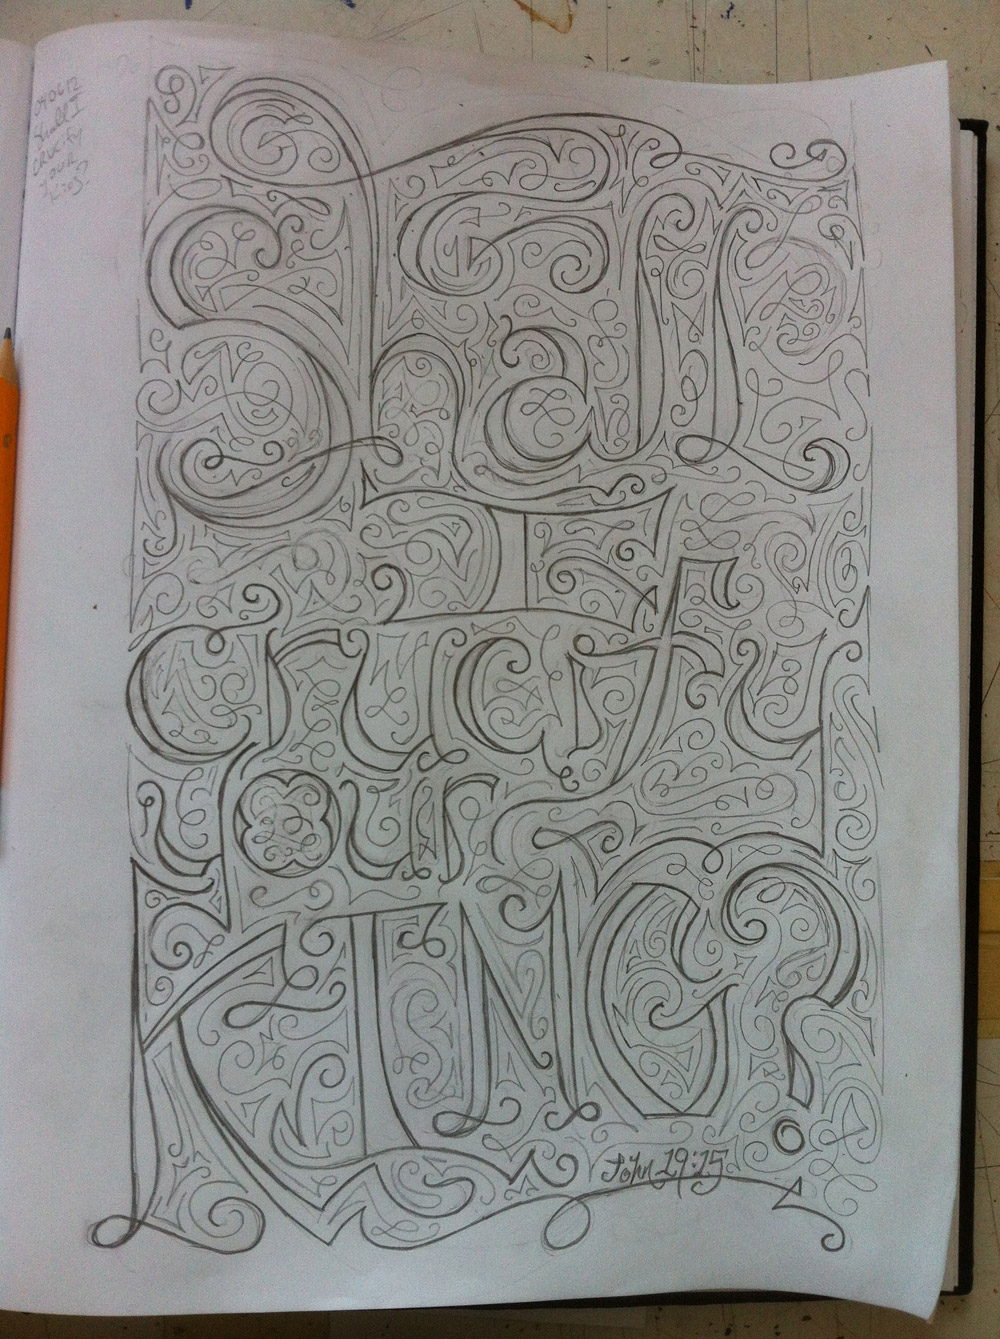 040612
Shall I
Crucify
Your
King?
Shall
I
crucify
your
KING?
John 19:15